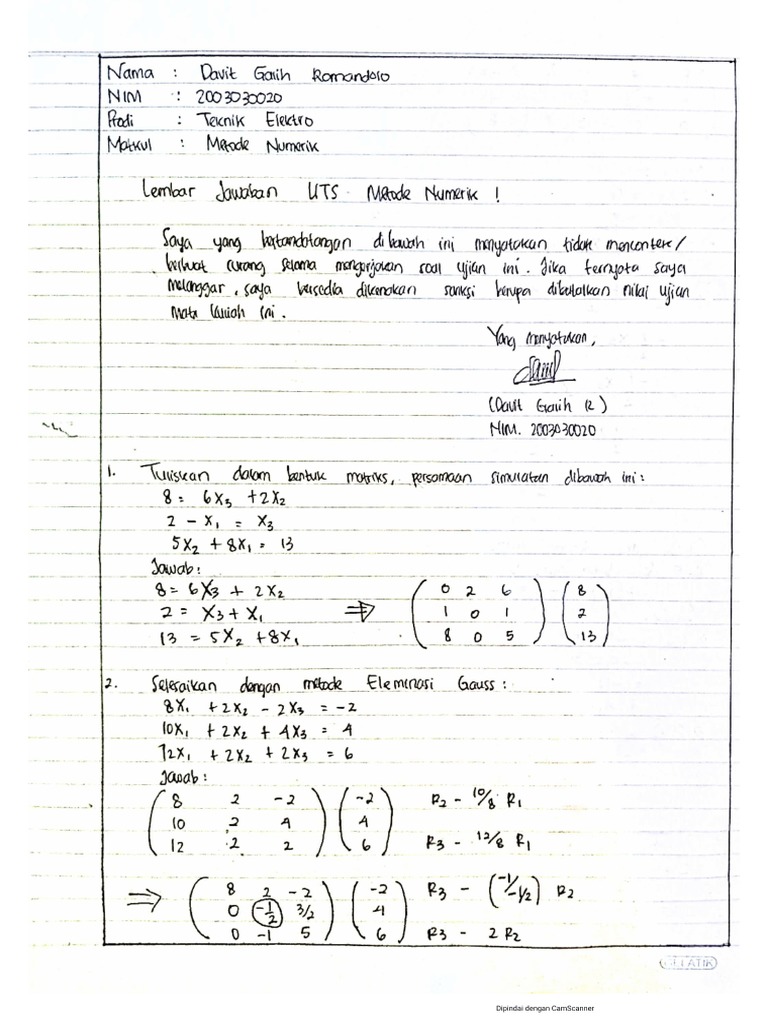 Nama : Davit Galih Romandoło
NIM : 2003030020
Prodi : Teknik Elektro
Matkul : Metode Numerik
Lembar Jawaban UTS Metode Numerik !
Saya yang bertandatangan dibawah ini menyatakan tidak mencontek/
berbuat curang selama mengerjakan soal ujian ini. Jika ternyata saya
melanggar, saya bersedia dikenakan sanksi berupa dibatalkan nilai ujian
mata kuliah ini.
Yang menyatakan,
(Davit Galih R)
NIM. 2003030020
1. Tuliskan dalam bentuk matriks, persamaan simultan dibawah ini:
8 = 6x₃ + 2x₂
2 - x₁ = x₃
5x₂ + 8x₁ = 13
Jawab:
8 = 6x₃ + 2x₂
2 = x₃ + x₁ ⇒
13 = 5x₂ + 8x₁
0 2 6 8
1 0 1 2
8 0 5 13
2. Selesaikan dengan metode Eleminasi Gauss:
8x₁ + 2x₂ - 2x₃ = -2
10x₁ + 2x₂ + 4x₃ = 4
12x₁ + 2x₂ + 2x₃ = 6
Jawab:
8 2 -2 -2 R₂ - 10/8 R₁
10 2 4 4
12 2 2 6 R₃ - 12/8 R₁
⇒ 8 2 -2 -2 R₃ - (-1/-1/2) R₂
0 -1/2 3/2 4
0 -1 5 6 R₃ - 2 R₂
GELATIK
Dipindai dengan CamScanner